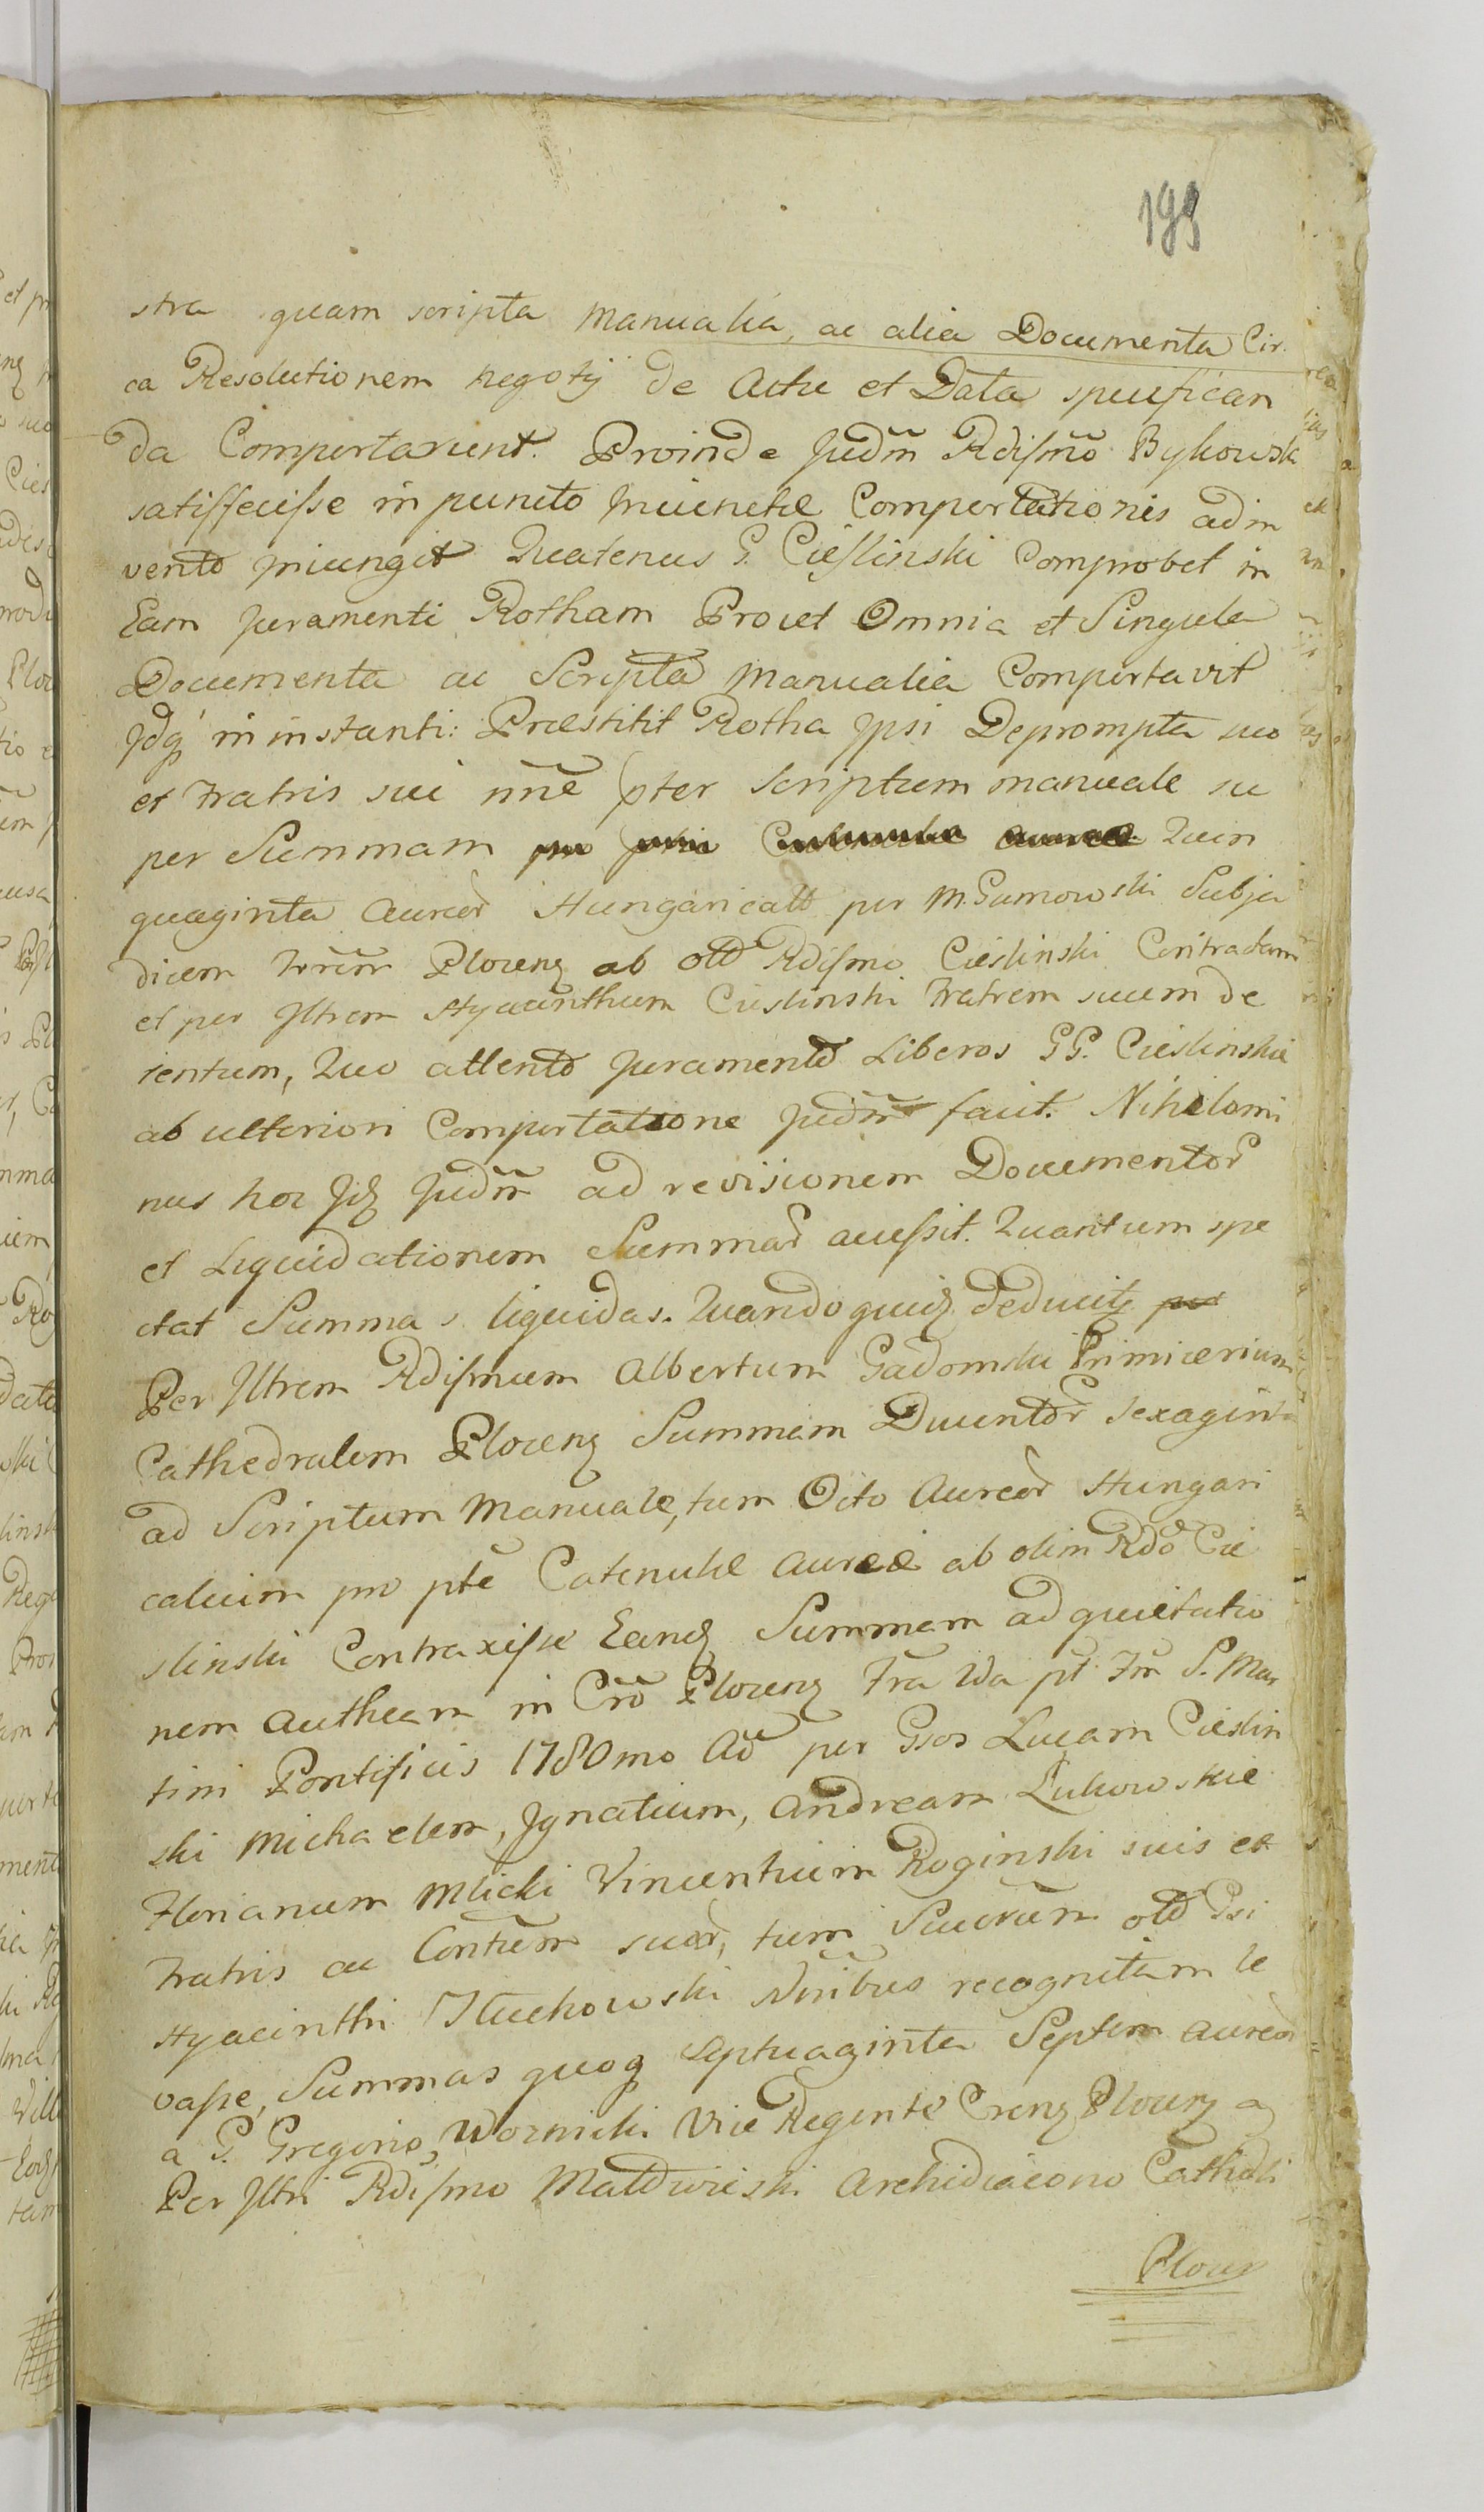 199
stra quam scripta manualia, ac alia Documenta Cir.
ca Resolutionem negotij de Actu et Data specifican
da Comportarunt. Proinde Judm̃ Rdissm̃o Bykowski
satisfecisse in puncto injunctæ Comportationis adin
vento injungit Quatenus G. Cieslinski Comprobet in
Eam Juramenti Rotham Prout Omnia et Singula
Documenta ac Scripta Manualia Comportavit
Jdq' in instanti: Præstitit Rotha Jpsi Deprompta suo
et Fratris sui nñe pter Scriptum manuale su
per Summam Quin
quaginta Aureor Hungaricall per M. Gumowski Subju
dicem Plocen ab olim Rdissmo Cieslinski Contractam
et per Jltrem Hyacinthum Cieslinski Fratrem suum de
ientum, Quo attento Juramento Liberos GG. Cieslinskie
ab ulteriori Comportatione Judm̃ facit. Nihilomi
nus hoc Jd Judm̃ ad revisionem Documentor
et Liquidationem Summar accessit. Quantum spe
ctat Summas liquidas. Quandoquid deducit
Per Jltrem Rdissmum Albertum Gadomski Primicerium
Cathedralem Plocen Summam Ducentor sexaginta
ad Scriptum Manuale, tum Octo Aureor Hungari
calium pro pte Catenulæ Aureæ ab olim Rdo Cie
slinski Contraxisse Eand Summam ad quietatio
nem Autheam in Cro Plocen Fra 4da pt Fm S. Mar
tini Pontificis 1780mo Ao per Gsos Lucam Cieslin
ski Michaelem, Jgnatium, Andream Lukowskie
Florianum Mlicki Vincentium Roginski suis et
Fratris ac suor, tum olim Gsi
Hyacinthi Nnibus recognitam le
vasse, Summas quoq septuaginta Septem Aureor
a G. Gregorio Woznicki Vice Regente Cren Plocen a
Per Jltri Rdissmo Archidiacono Cathedli
Plocen